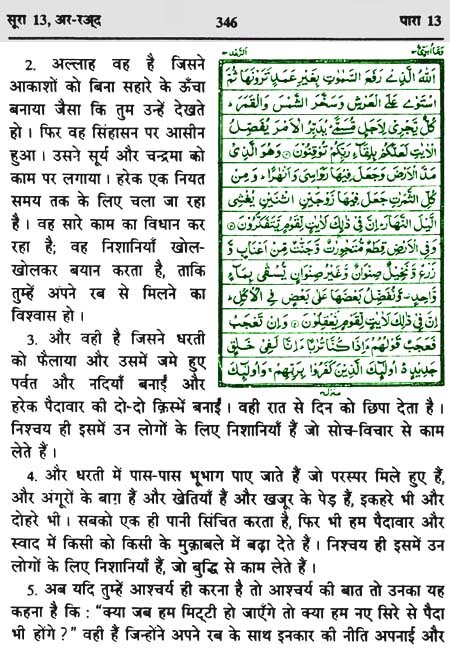 सूरा 13, अर-रअ्द
346
पारा 13
2. अल्लाह वह है जिसने
आकाशों को बिना सहारे के ऊँचा
बनाया जैसा कि तुम उन्हें देखते
हो। फिर वह सिंहासन पर आसीन
हुआ। उसने सूर्य और चन्द्रमा को
काम पर लगाया। हरेक एक नियत
समय तक के लिए चला जा रहा
है। वह सारे काम का विधान कर
रहा है; वह निशानियाँ खोल-
खोलकर बयान करता है, ताकि
तुम्हें अपने रब से मिलने का
विश्वास हो।
3. और वही है जिसने धरती
को फैलाया और उसमें जमे हुए
पर्वत और नदियाँ बनाईं और
हरेक पैदावार की दो-दो क़िस्में बनाईं। वही रात से दिन को छिपा देता है।
निश्चय ही इसमें उन लोगों के लिए निशानियाँ हैं जो सोच-विचार से काम
लेते हैं।
4. और धरती में पास-पास भूभाग पाए जाते हैं जो परस्पर मिले हुए हैं,
और अंगूरों के बाग़ हैं और खेतियाँ हैं और खजूर के पेड़ हैं, इकहरे भी और
दोहरे भी। सबको एक ही पानी सिंचित करता है, फिर भी हम पैदावार और
स्वाद में किसी को किसी के मुक़ाबले में बढ़ा देते हैं। निश्चय ही इसमें उन
लोगों के लिए निशानियाँ हैं, जो बुद्धि से काम लेते हैं।
5. अब यदि तुम्हें आश्चर्य ही करना है तो आश्चर्य की बात तो उनका यह
कहना है कि : "क्या जब हम मिट्टी हो जाएँगे तो क्या हम नए सिरे से पैदा
भी होंगे?" वही हैं जिन्होंने अपने रब के साथ इनकार की नीति अपनाई और
اَللّٰهُ الَّذِیْ رَفَعَ السَّمٰوٰتِ بِغَیْرِ عَمَدٍ تَرَوْنَهَا ثُمَّ
اسْتَوٰی عَلَی الْعَرْشِ وَسَخَّرَ الشَّمْسَ وَالْقَمَرَ
كُلٌّ یَّجْرِیْ لِاَجَلٍ مُّسَمًّی یُدَبِّرُ الْاَمْرَ یُفَصِّلُ
الْاٰیٰتِ لَعَلَّكُمْ بِلِقَآءِ رَبِّكُمْ تُوْقِنُوْنَ وَهُوَ الَّذِیْ
مَدَّ الْاَرْضَ وَجَعَلَ فِیْهَا رَوَاسِیَ وَاَنْهٰرًا وَمِنْ
كُلِّ الثَّمَرٰتِ جَعَلَ فِیْهَا زَوْجَیْنِ اثْنَیْنِ یُغْشِی
الَّیْلَ النَّهَارَ اِنَّ فِیْ ذٰلِكَ لَاٰیٰتٍ لِّقَوْمٍ یَّتَفَكَّرُوْنَ
وَفِی الْاَرْضِ قِطَعٌ مُّتَجٰوِرٰتٌ وَّجَنّٰتٌ مِّنْ اَعْنَابٍ وَّ
زَرْعٌ وَّنَخِیْلٌ صِنْوَانٌ وَّغَیْرُ صِنْوَانٍ یُّسْقٰی بِمَآءٍ
وَّاحِدٍ وَنُفَضِّلُ بَعْضَهَا عَلٰی بَعْضٍ فِی الْاُكُلِ
اِنَّ فِیْ ذٰلِكَ لَاٰیٰتٍ لِّقَوْمٍ یَّعْقِلُوْنَ وَاِنْ تَعْجَبْ
فَعَجَبٌ قَوْلُهُمْ ءَاِذَا كُنَّا تُرٰبًا ءَاِنَّا لَفِیْ خَلْقٍ
جَدِیْدٍ اُولٰٓئِكَ الَّذِیْنَ كَفَرُوْا بِرَبِّهِمْ وَاُولٰٓئِكَ